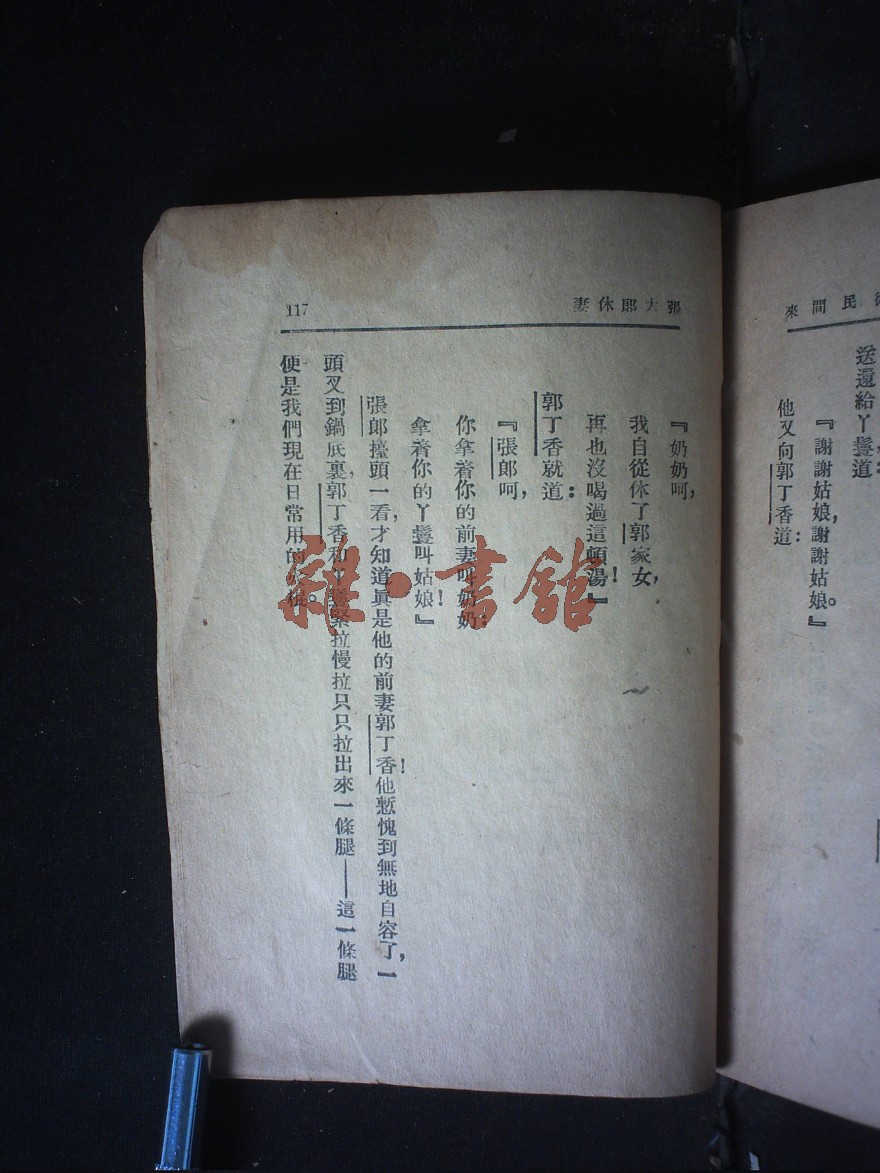 民間來
送還給丫鬟道：
『謝謝姑娘，謝謝姑娘。』
他又向郭丁香道：
張大郎休妻
117
『奶奶呵，
我自從休了郭家女，
再也沒喝過這頓湯！』
郭丁香就道：
『張郎呵，
你拿着你的前妻叫奶奶；
拿着你的丫鬟叫姑娘！』
張郎擡頭一看，才知道眞是他的前妻郭丁香！他慙愧到無地自容了，一
頭叉到鍋底裏，郭丁香和丫鬟緊拉慢拉只只拉出來一條腿——這一條腿
便是我們現在日常用的棍。
雜·書館